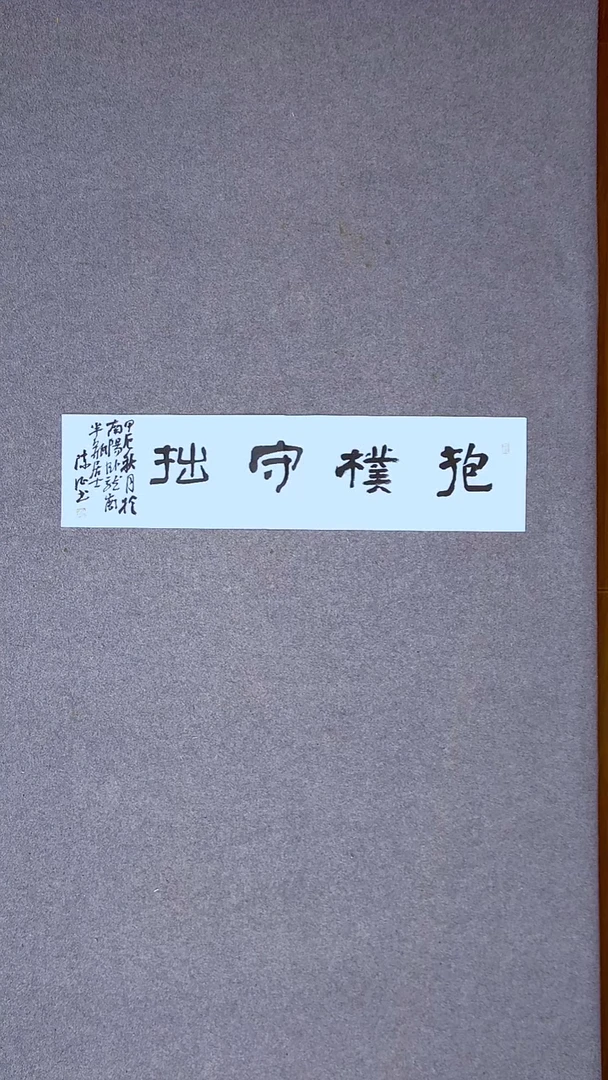 抱樸守拙
甲辰秋月於
南陽卧龍崗
半瓶居士